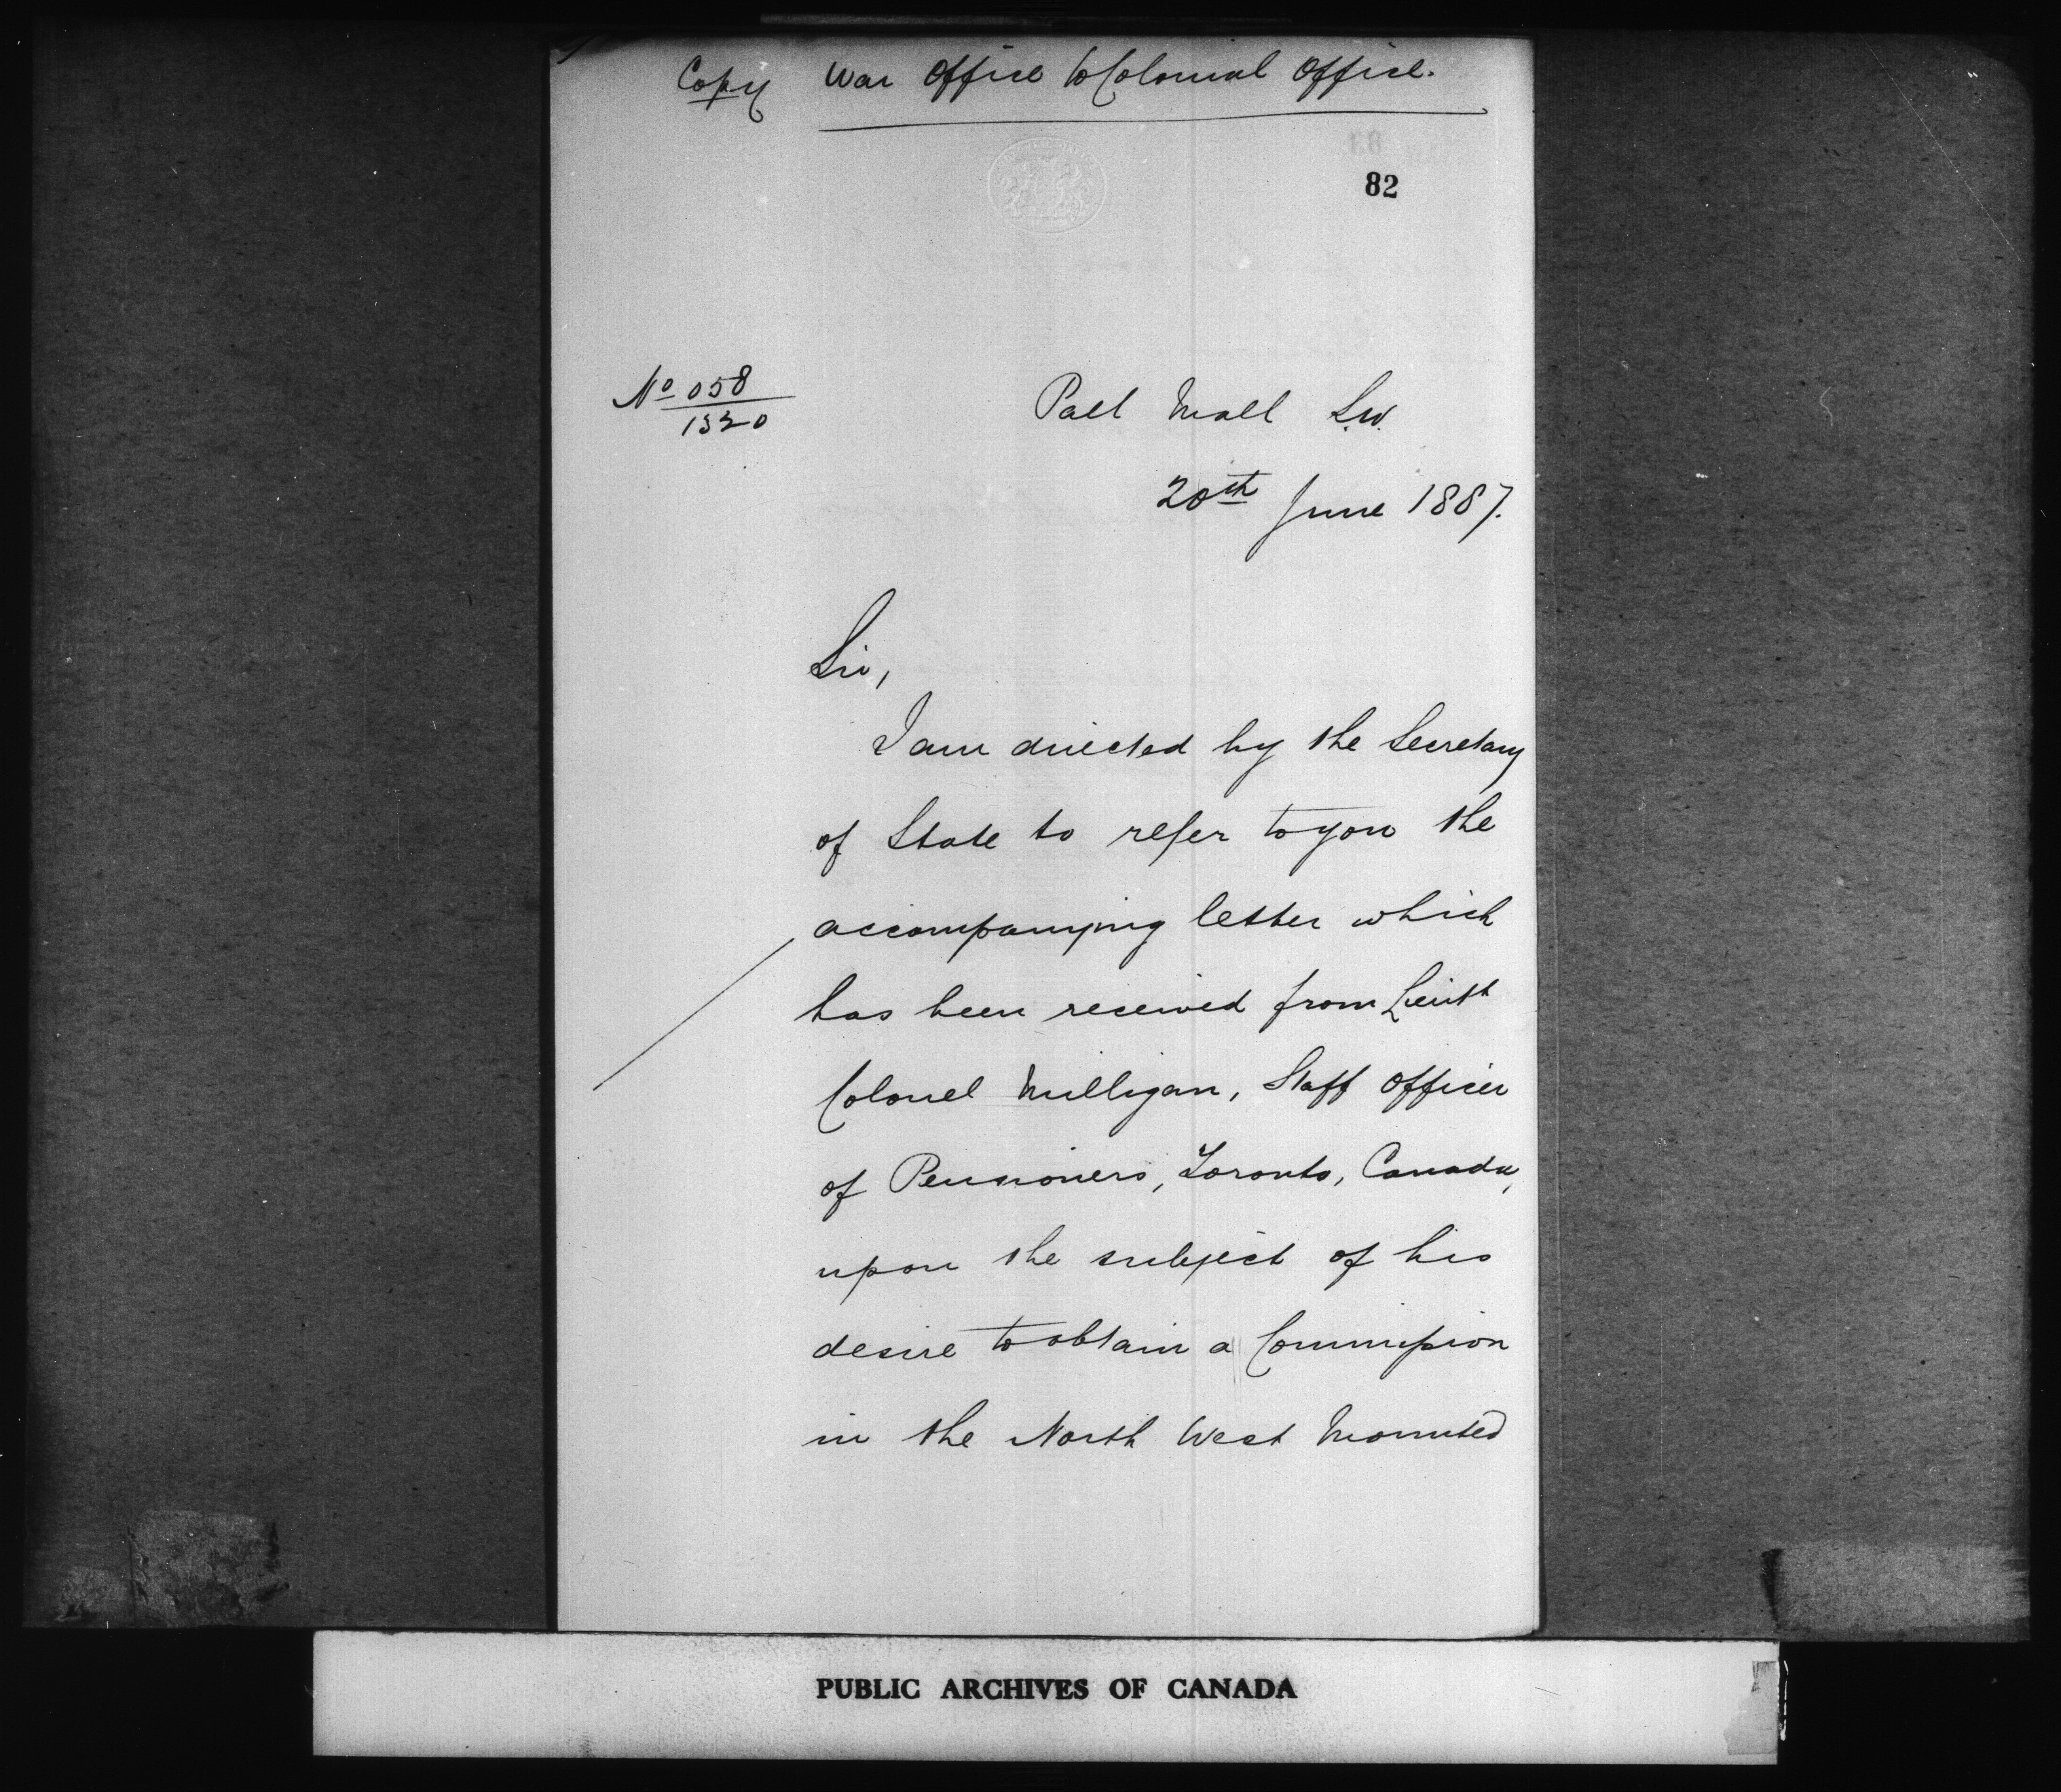 Copy War Office to Colonial Office.
82
No 058
1320
Pall Mall S.W.
20th June 1887.
Sir,
I am directed by the Secretary
of State to refer to you the
accompanying letter which
has been received from Lieut
Colonel Milligan, Staff Officer
of Pensioners, Toronto, Canada,
upon the subject of his
desire to obtain a Commission
in the North West Mounted
PUBLIC ARCHIVES OF CANADA